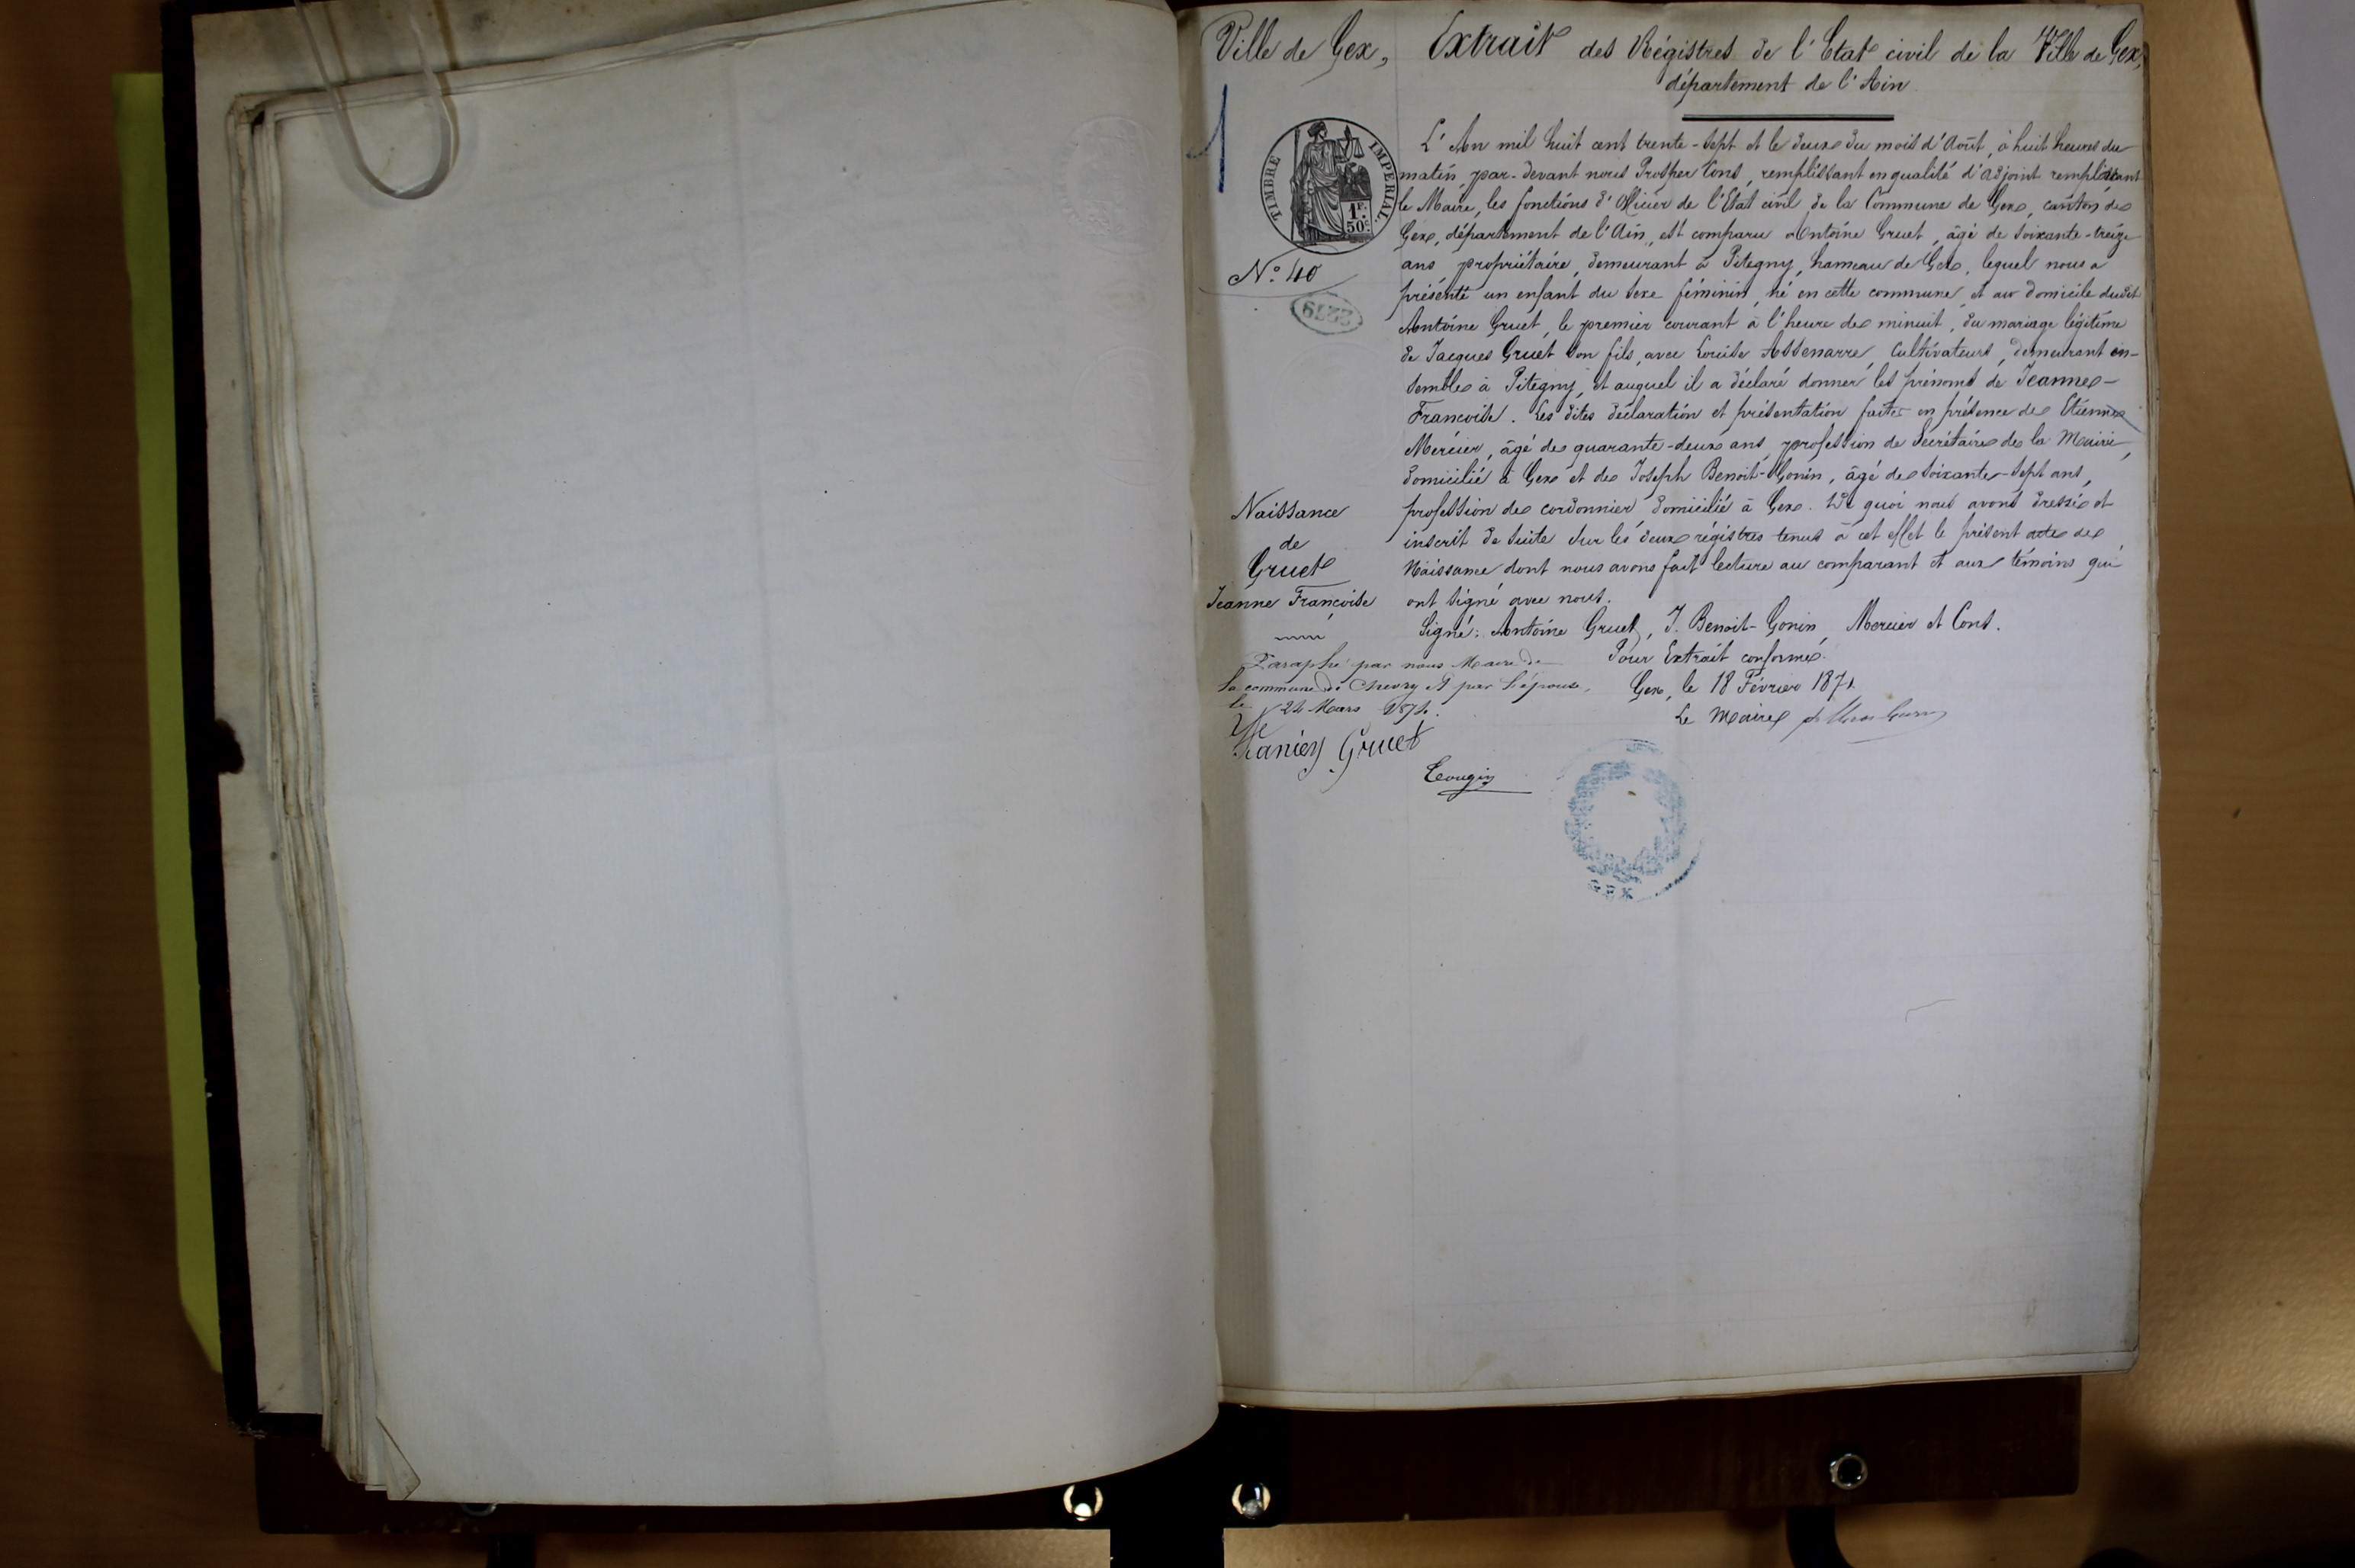 Ville de Gex, Extrait des Régistres de l'Etat civil de la Ville de Gex,
département de l'Ain
1
TIMBRE IMPERIAL
1F.
50c
N° 40
L'An mil huit cent trente-sept et le deux du mois d'Août, à huit heures du
matin, par-devant nous Prosper Cons, remplissant en qualité d'adjoint remplissant
le Maire, les fonctions d'Officier de l'Etat civil de la Commune de Gex, canton de
Gex, département de l'Ain, est comparu Antoine Gruet, âgé de soixante-treize
ans propriétaire, demeurant à Pitegny, hameau de Gex, lequel nous a
présenté un enfant du sexe féminin, né en cette commune, et au domicile dudit
Antoine Gruet, le premier courant à l'heure de minuit, du mariage légitime
de Jacques Gruet son fils, avec Louise Assenarre, Cultivateurs, demeurant en-
semble à Pitegny, et auquel il a déclaré donner les prénoms de Jeanne-
Francoise. Les dites déclaration et présentation faites en présence de Etienne
Mercier, âgé de quarante-deux ans, profession de Secrétaire de la Mairie,
domicilié à Gex et de Joseph Benoit-Gonin, âgé de soixante-sept ans,
profession de cordonnier, domicilié à Gex. De quoi nous avons dressé et
inscrit de suite sur les deux régistres tenus à cet effet le présent acte de
Naissance dont nous avons fait lecture au comparant et aux témoins qui
ont signé avec nous.
Naissance
de
Gruet
Jeanne Françoise
Signé: Antoine Gruet, J. Benoit-Gonin, Mercier et Cons.
Pour Extrait conforme.
Gex, le 18 Février 1871
Le Maire
Paraphé par nous Maire de
la commune de Chevry et par l'épouse,
le 24 Mars 1871.
Gruet
GEX